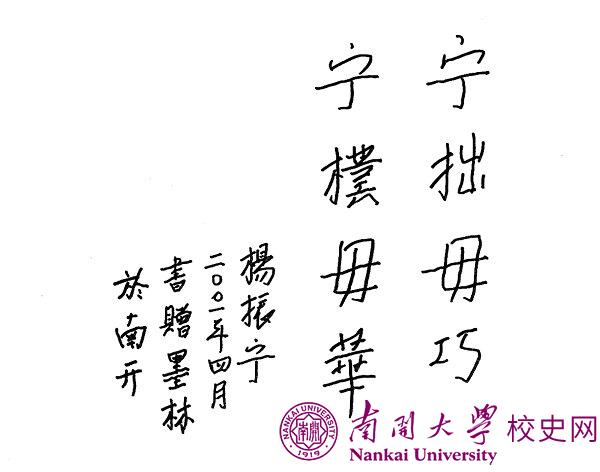 宁拙毋巧
宁樸毋華
楊振宁
二〇〇一年四月
書贈墨林
於南开
NANKAI UNIVERSITY
1919
南開大學 校史网
Nankai University